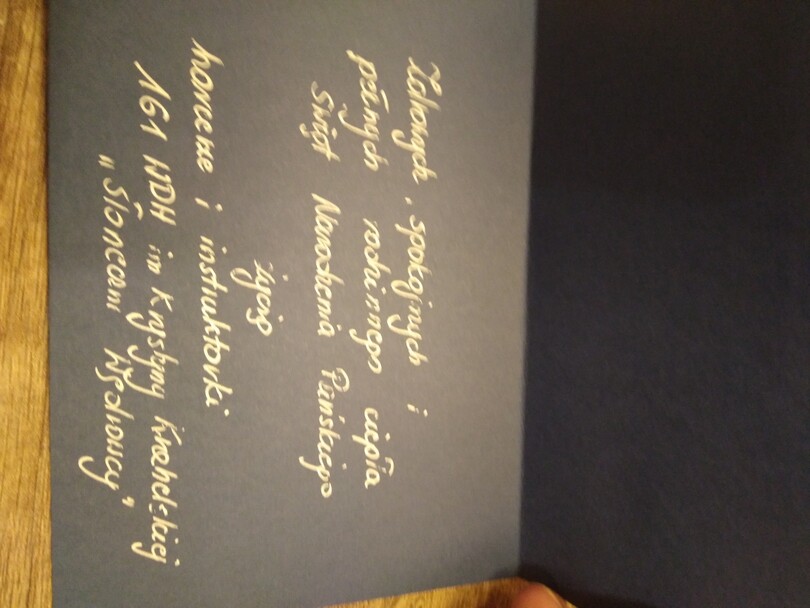 Zdrowych, spokojnych i
pełnych rodzinnego ciepła
Świąt Narodzenia Pańskiego
życzą
harcerze i instruktorki
161 WDH im Krystyny Krahelskiej
"Słońcem Wschodzący"